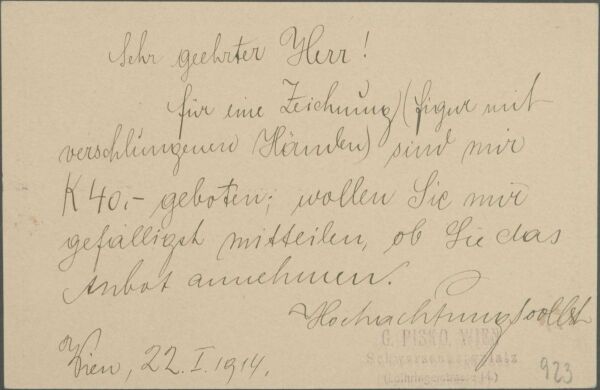 Sehr geehrter Herr!
für eine Zeichnung (figur mit
verschlungenen Händen) sind mir
K 40.- geboten; wollen Sie mir
gefälligst mitteilen, ob Sie das
Anbot annehmen.
Hochachtungsvollst
G. PISKO, WIEN
Schwarzenbergplatz
(Lothringerstrasse 14)
Wien, 22. I. 1914.
923